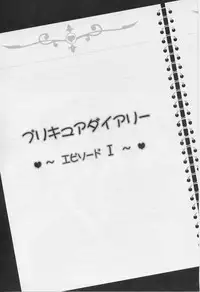 プリキュアダイアリー
♥ ～ エピソード Ⅰ ～ ♥